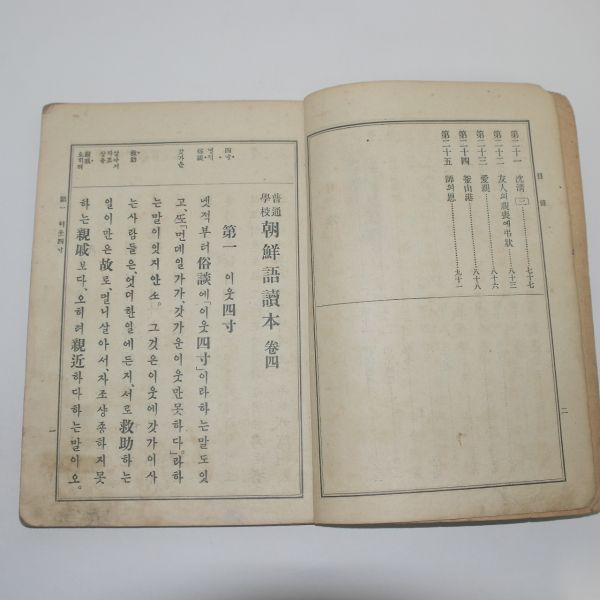 目錄
第二十一 沈淸(三)…………七十七
第二十二 友人의親喪에弔狀…………八十三
第二十三 愛親…………八十六
第二十四 釜山港…………八十八
第二十五 師의恩…………九十一
二
普通學校 朝鮮語讀本 卷四
第一 이웃四寸
녯적부터俗談에「이웃四寸」이라하는말도잇
고、또「먼데일가가、갓가운이웃만못하다。」라하
는말이잇지안소。 그것은이웃에갓가이사
는사람들은、엇더한일에든지、서로救助하는
일이만은故로、멀니살아서、자조상종하지못
하는親戚보다、오히려親近하다하는말이오。
四寸
俗談
갓가운
救助
살아서
자조
상종
親戚
오히려
第一 이웃四寸
一